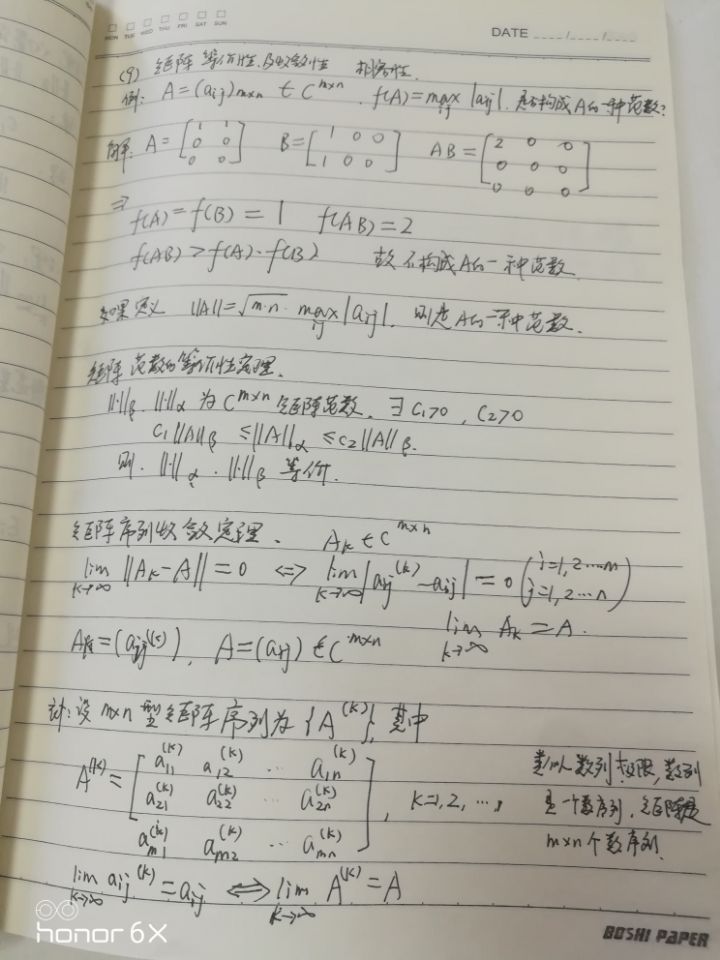 MON TUE WED THU FRI SAT SUN
DATE ____/____/____
(9) 矩阵等价性.及收敛性 相容性.
例: A=(aij)m×n ∈ C^{m×n}. f(A)=max_{ij} |aij|. 是否构成A的一种范数?
解: A=[1 1; 0 0; 0 0] B=[1 0 0; 1 0 0] AB=[2 0 0; 0 0 0; 0 0 0]
⇒ f(A)=f(B)=1 f(AB)=2
f(AB)>f(A)·f(B) 故不构成A的一种范数.
如果定义 ||A||=√(m·n)·max_{ij}|aij|. 则是A的一种范数.
矩阵范数的等价性定理.
||·||β. ||·||α 为 C^{m×n} 矩阵范数. ∃ C1>0, C2>0
C1||A||β ≤||A||α ≤C2||A||β.
则. ||·||α. ||·||β 等价.
矩阵序列收敛定理. Ak∈C^{m×n}
lim_{k→∞} ||Ak-A||=0 ⇔ lim_{k→∞}|aij^(k)-aij|=0 (i=1,2…m j=1,2…n)
lim_{k→∞} Ak=A.
Ak=(aij^(k)), A=(aij)∈C^{m×n}
注: 设 m×n 型矩阵序列为 {A^(k)}, 其中
A^(k)=[a11^(k) a12^(k) … a1n^(k); a21^(k) a22^(k) … a2n^(k); am1^(k) am2^(k) … amn^(k)], k=1,2,…,
类似数列极限,数列
是一个数序列,矩阵是
m×n个数序列.
lim_{k→∞} aij^(k)=aij ⇔ lim_{k→∞} A^(k)=A
honor 6X
BOSHI PAPER